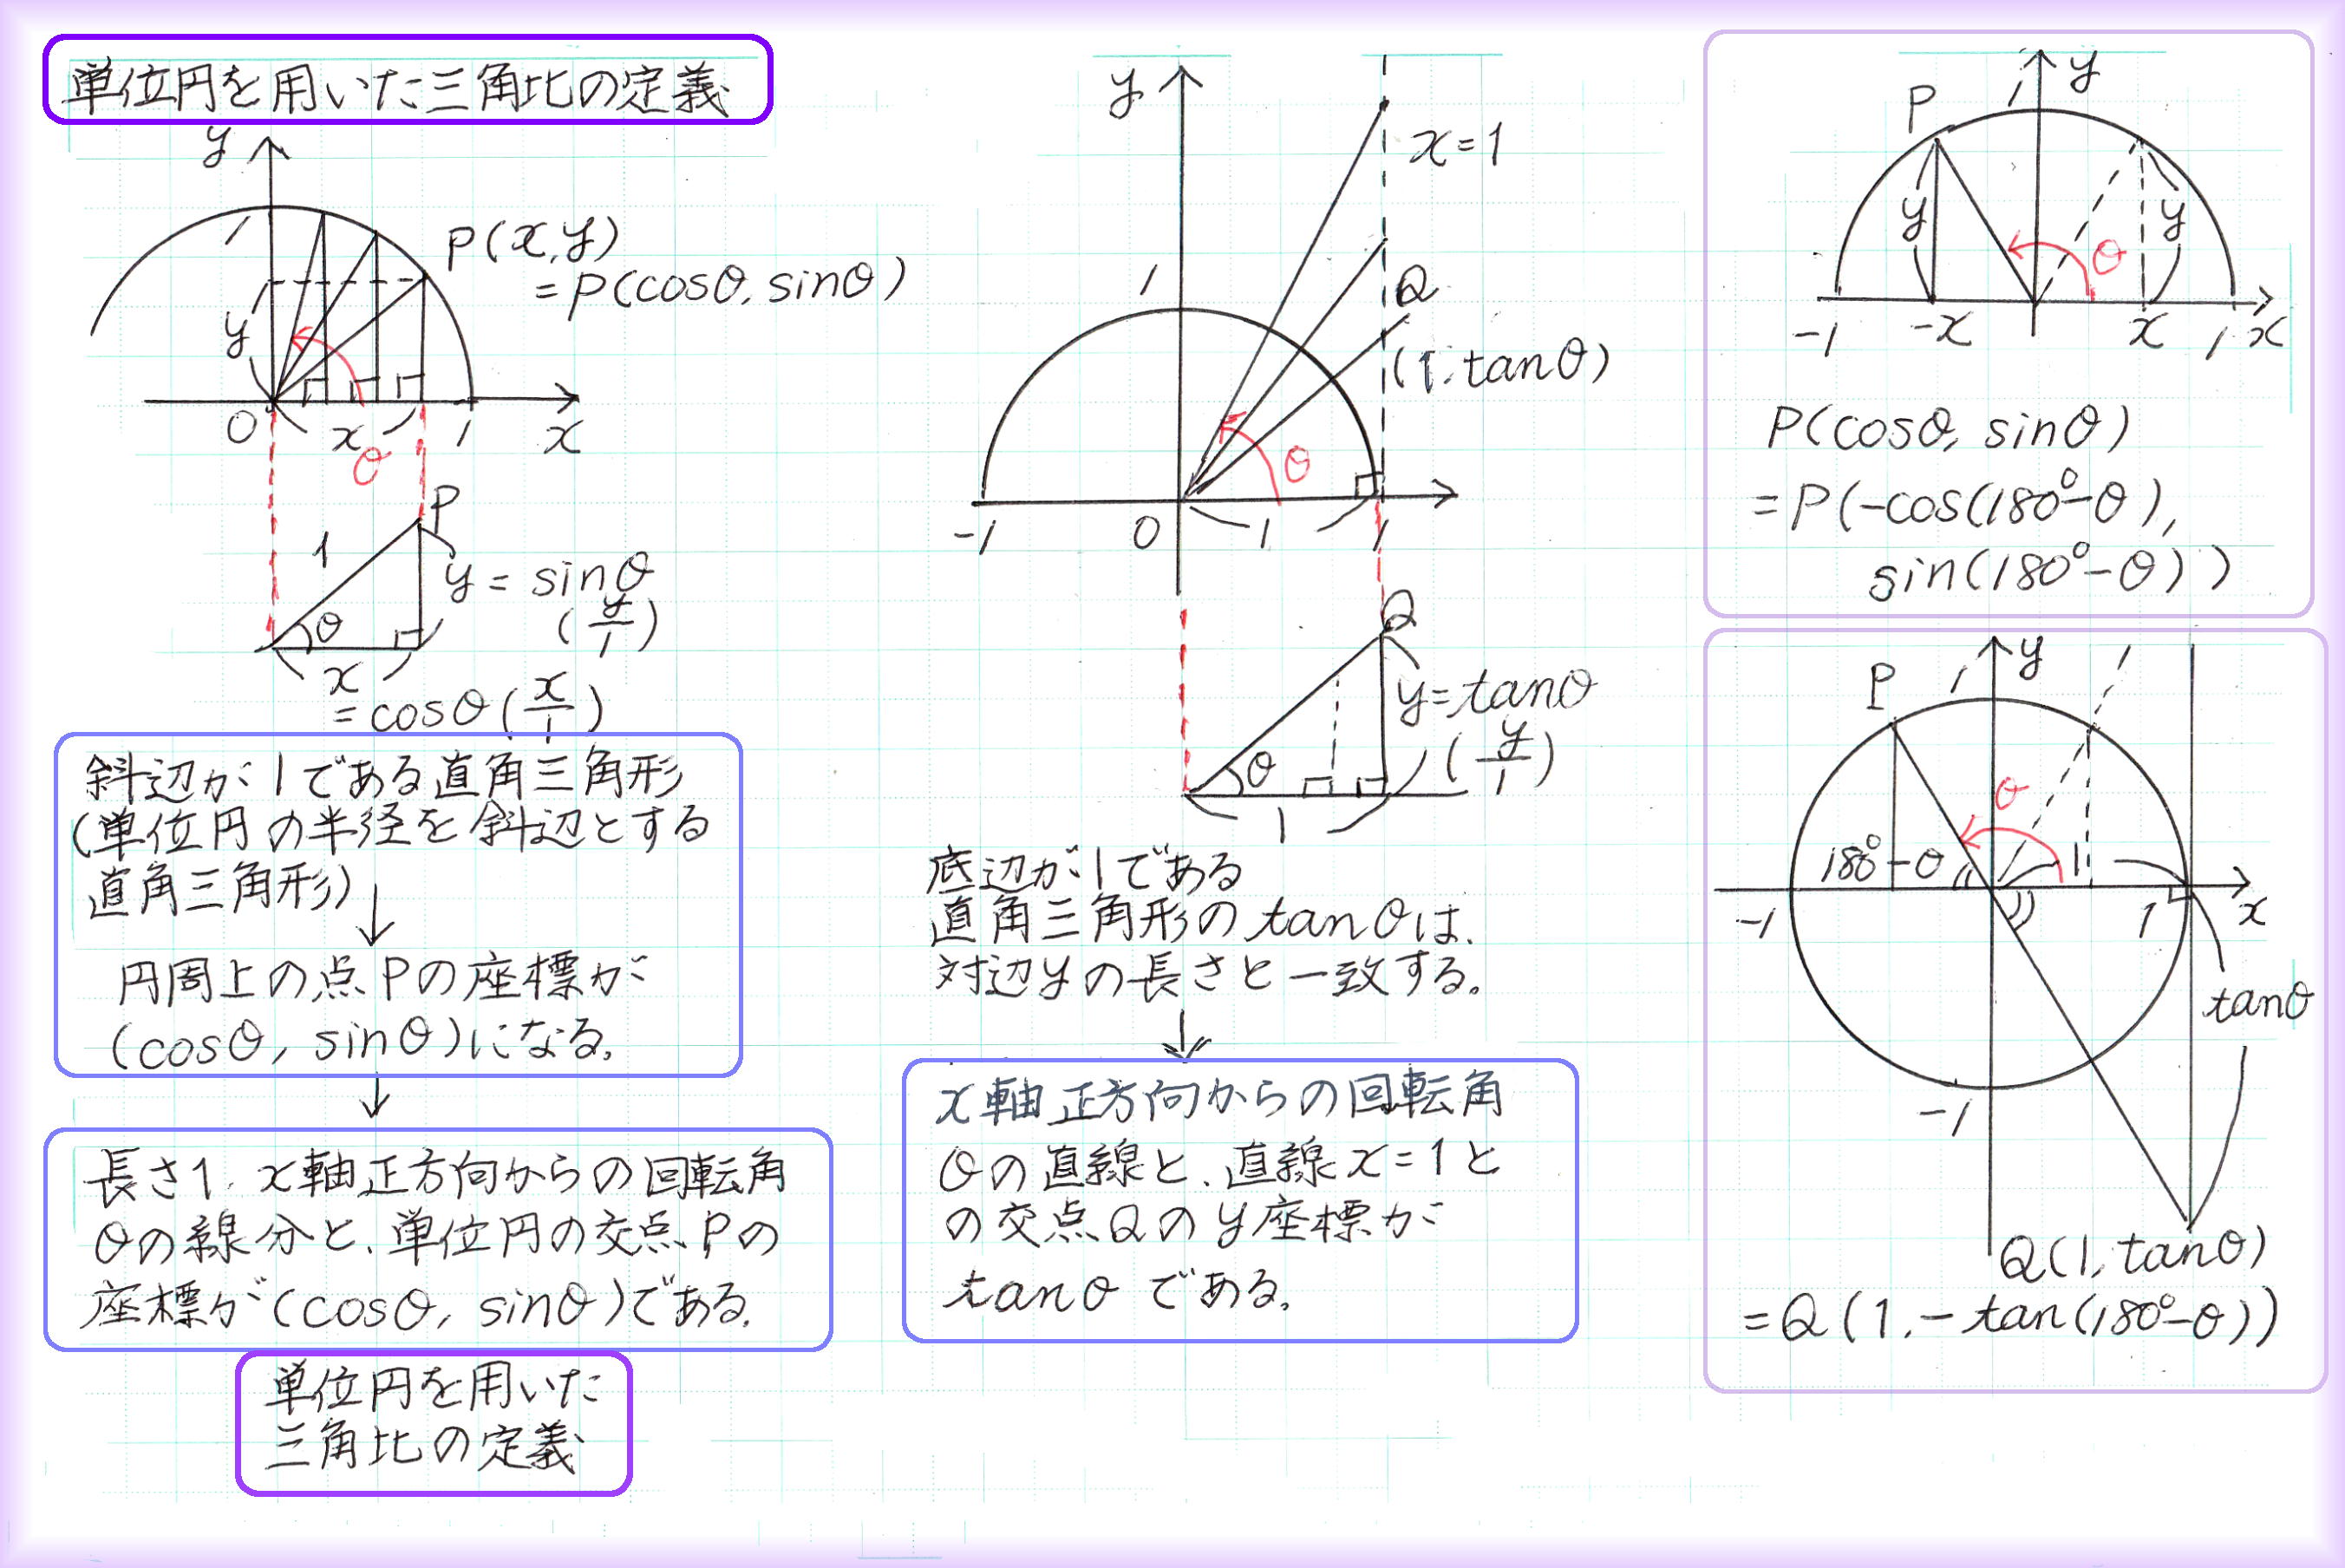 単位円を用いた三角比の定義
y
1
P(x,y)
=P(cosθ, sinθ)
y
0
x
1
x
θ
P
1
y = sinθ
(y/1)
θ
x
=cosθ(x/1)
斜辺が1である直角三角形
(単位円の半径を斜辺とする
直角三角形)
↓
円周上の点Pの座標が
(cosθ, sinθ)になる.
↓
長さ1, x軸正方向からの回転角
θの線分と、単位円の交点Pの
座標が(cosθ, sinθ)である.
単位円を用いた
三角比の定義
y
x=1
1
Q
(1, tanθ)
θ
-1
0
1
1
Q
y=tanθ
(y/1)
θ
1
底辺が1である
直角三角形のtanθは、
対辺yの長さと一致する。
↓
x軸正方向からの回転角
θの直線と、直線x=1と
の交点Qのy座標が
tanθである.
y
P
1
y
θ
y
-1
-x
x
1
x
P(cosθ, sinθ)
=P(-cos(180°-θ),
sin(180°-θ))
y
P
1
θ
180°-θ
1
-1
1
x
tanθ
-1
Q(1, tanθ)
=Q(1, -tan(180°-θ))